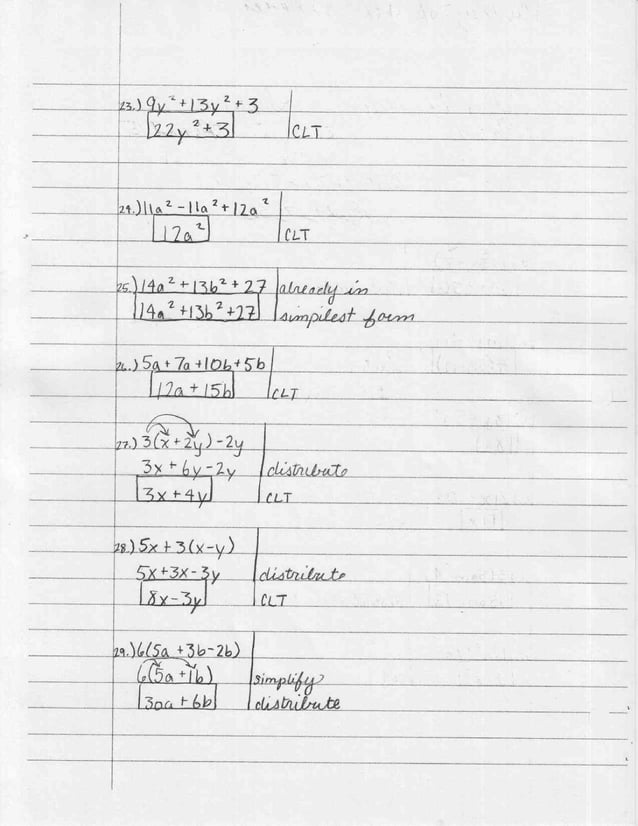 23.) 9y² + 13y² + 3
22y² + 3 CLT
24.) 11a² - 11a² + 12a²
12a² CLT
25.) 14a² + 13b² + 27 already in
14a² + 13b² + 27 simpilest form
26.) 5a + 7a + 10b + 5b
12a + 15b CLT
27.) 3(x + 2y) - 2y
3x + 6y - 2y distribute
3x + 4y CLT
28.) 5x + 3(x - y)
5x + 3x - 3y distribute
8x - 3y CLT
29.) 6(5a + 3b - 2b)
6(5a + 1b) simplify
30a + 6b distribute